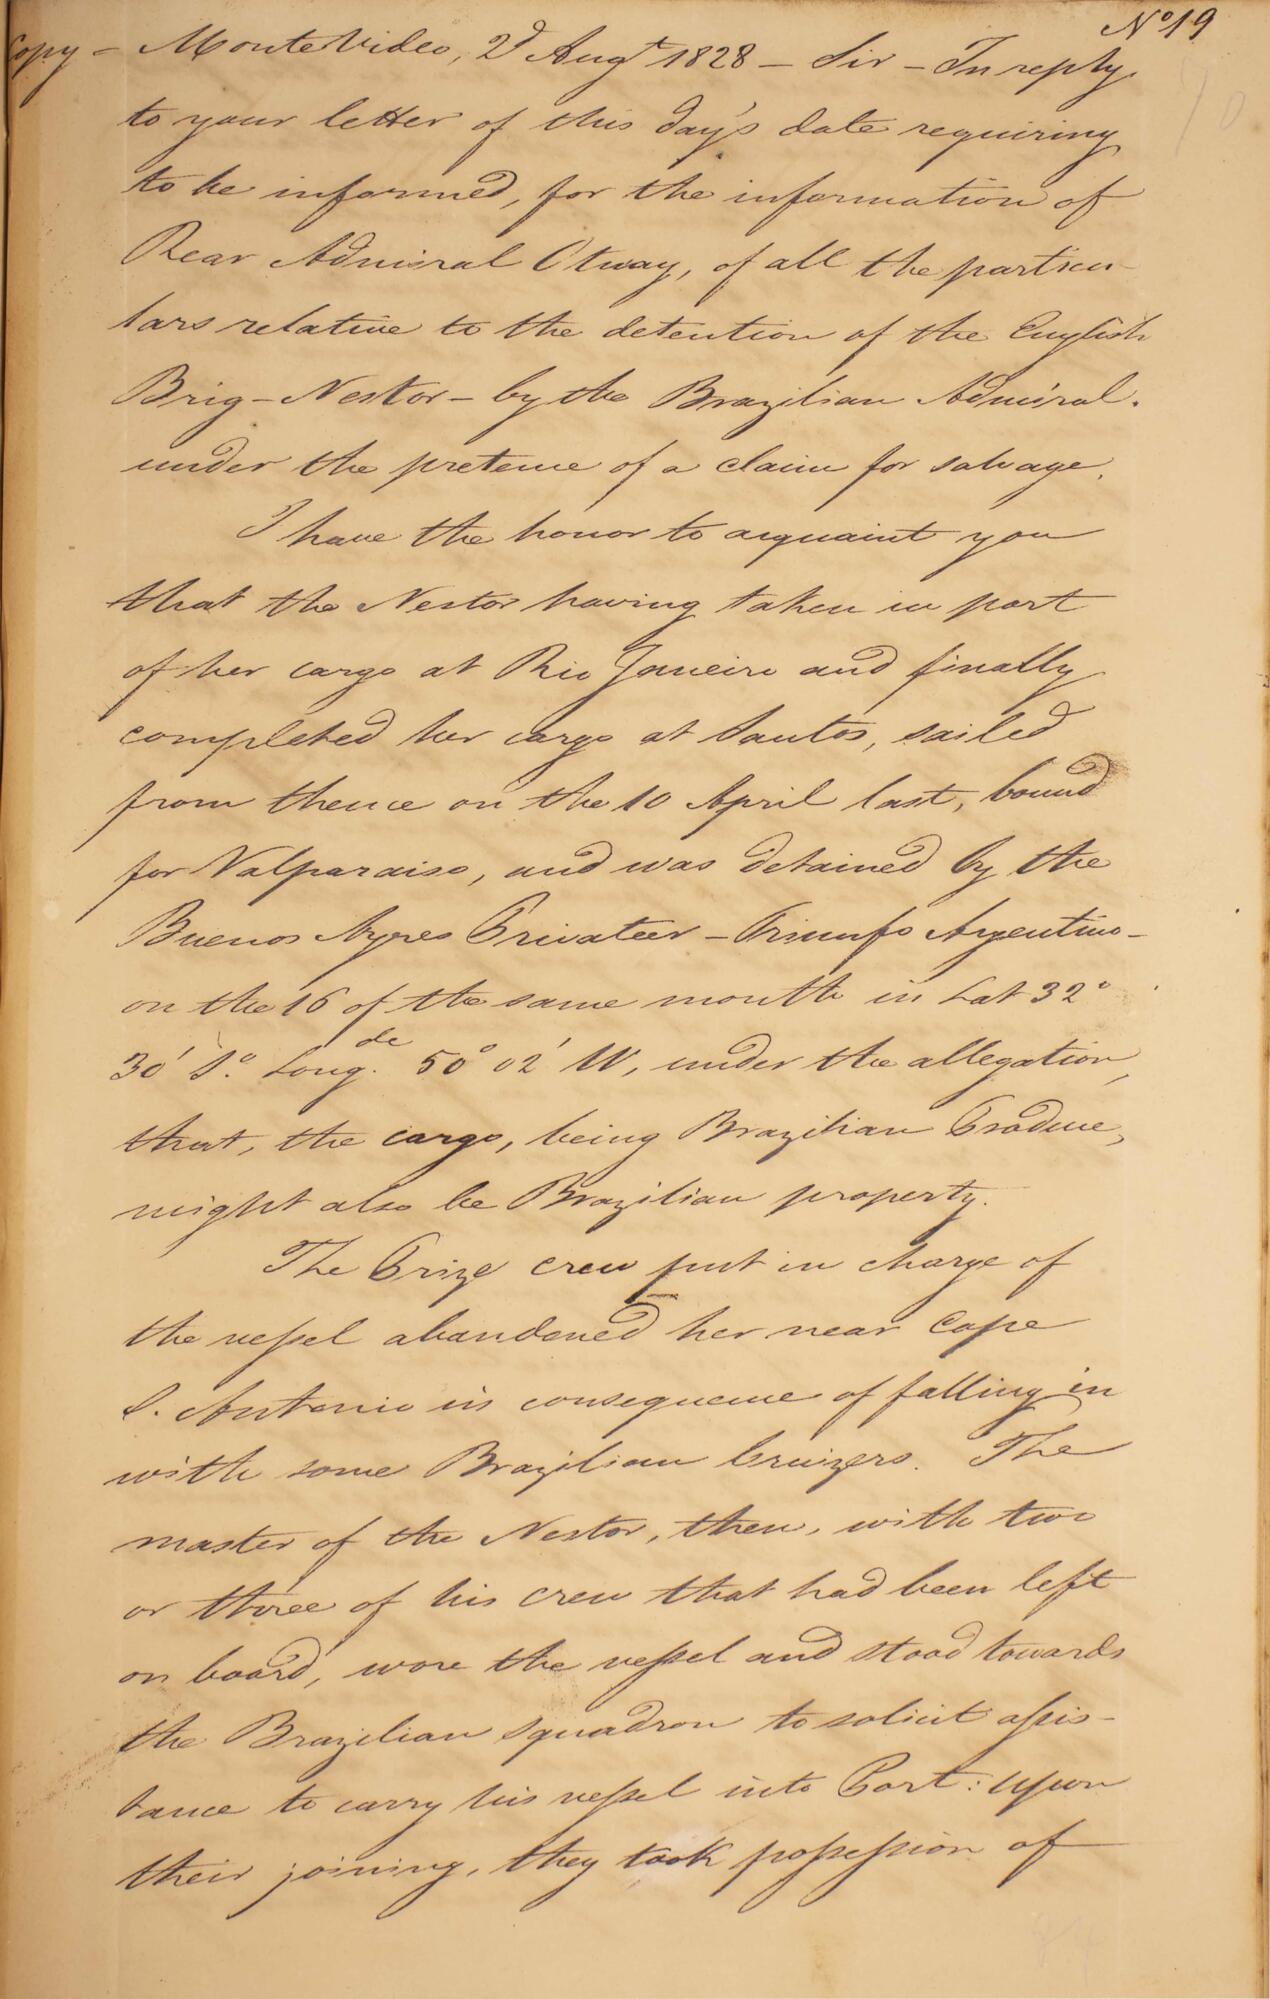 No 19
Copy - MonteVideo, 2d Augt 1828 - Sir - In reply
to your letter of this day's date requiring
to be informed, for the information of
Rear Admiral Otway, of all the particu-
lars relative to the detention of the English
Brig - Nestor - by the Brazilian Admiral.
under the pretence of a claim for salvage.
I have the honor to acquaint you
that the Nestor having taken in part
of her cargo at Rio Janeiro and finally
completed her cargo at Santos, sailed
from thence on the 10 April last, bound
for Valparaiso, and was detained by the
Buenos Ayres Privateer - Triunfo Argentino -
on the 16 of the same month in Lat 32°
30' So. Longde. 50° 02' W, under the allegation,
that, the cargo, being Brazilian Produce,
might also be Brazilian property.
The Prize crew put in charge of
the vessel abandoned her near Cape
S. Antonio in consequence of falling in
with some Brazilian Cruizers. The
master of the Nestor, then, with two
or three of his crew that had been left
on board, wore the vessel and stood towards
the Brazilian squadron to solicit assis-
tance to carry his vessel into Port: upon
their joining, they took possession of